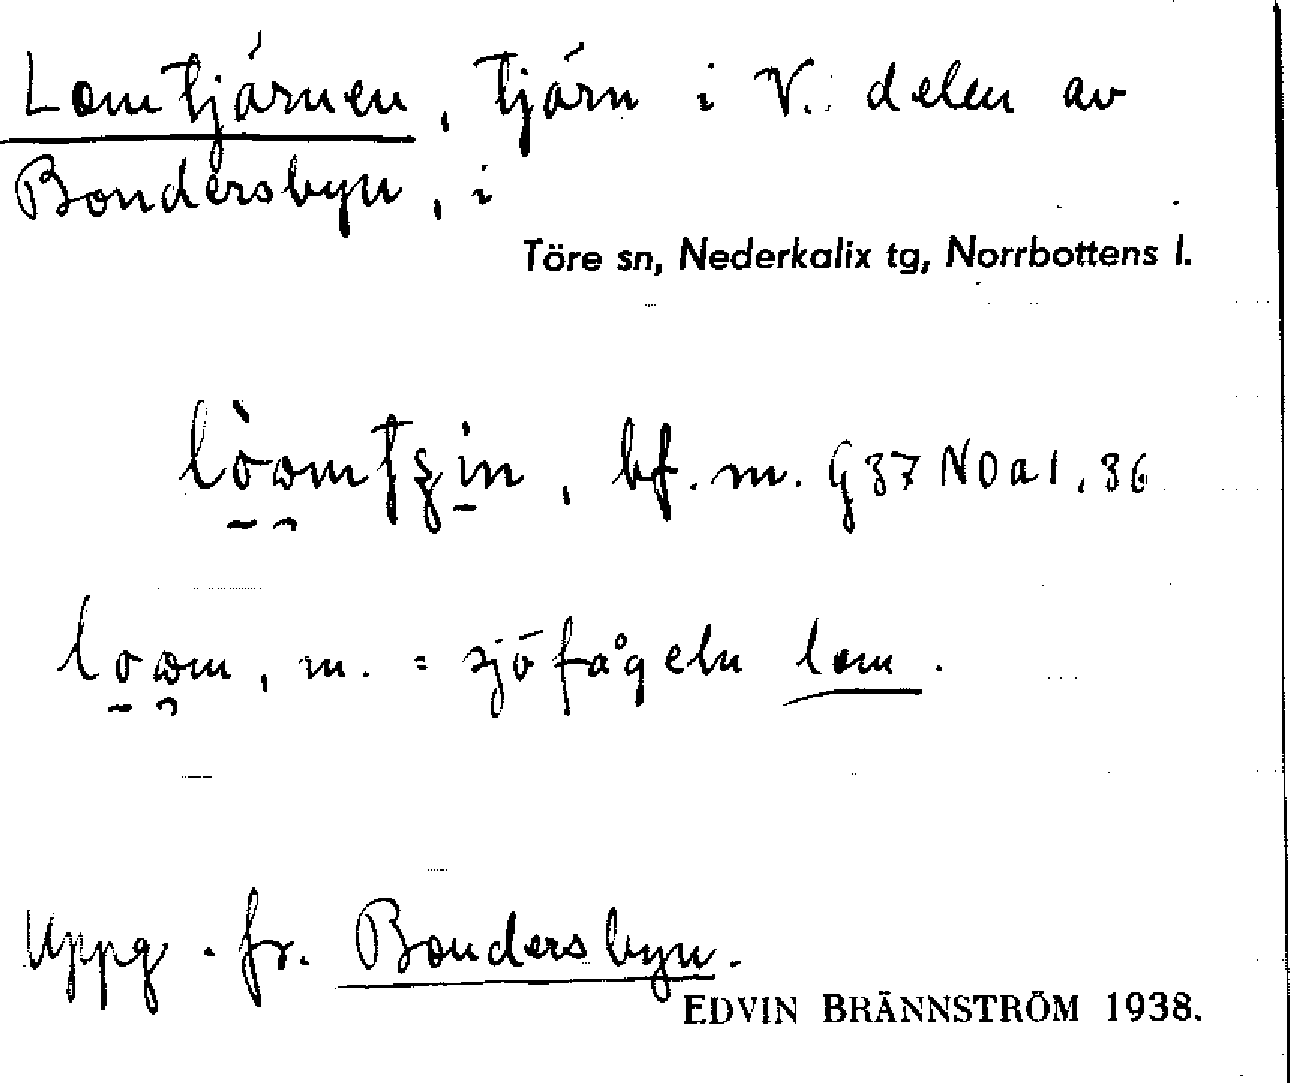 Lomtjärnen, tjärn i V. delen av
Bondersbyn, i
Töre sn, Nederkalix tg, Norrbottens l.
bf. m. G37 NOa1,36
m. = sjöfågeln lom.
Uppg. fr. Bondersbyn.
EDVIN BRÄNNSTRÖM 1938.